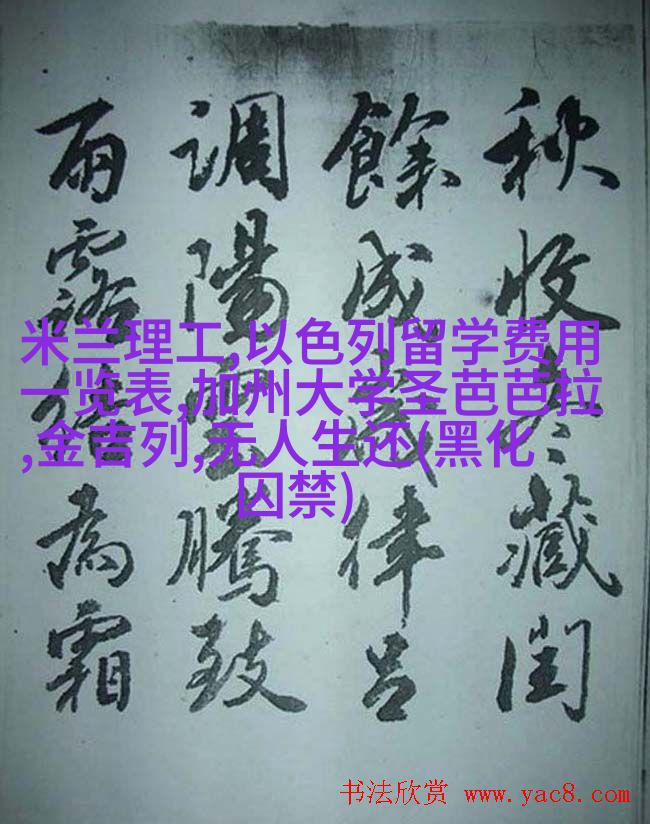 秋收冬藏閏
餘成歲律呂
調陽雲騰致
雨露結為霜
米兰理工,以色列留学费用
一览表,加州大学圣芭芭拉
,金吉列,无人生还(黑化
囚禁)
书法欣赏 www.yac8.com